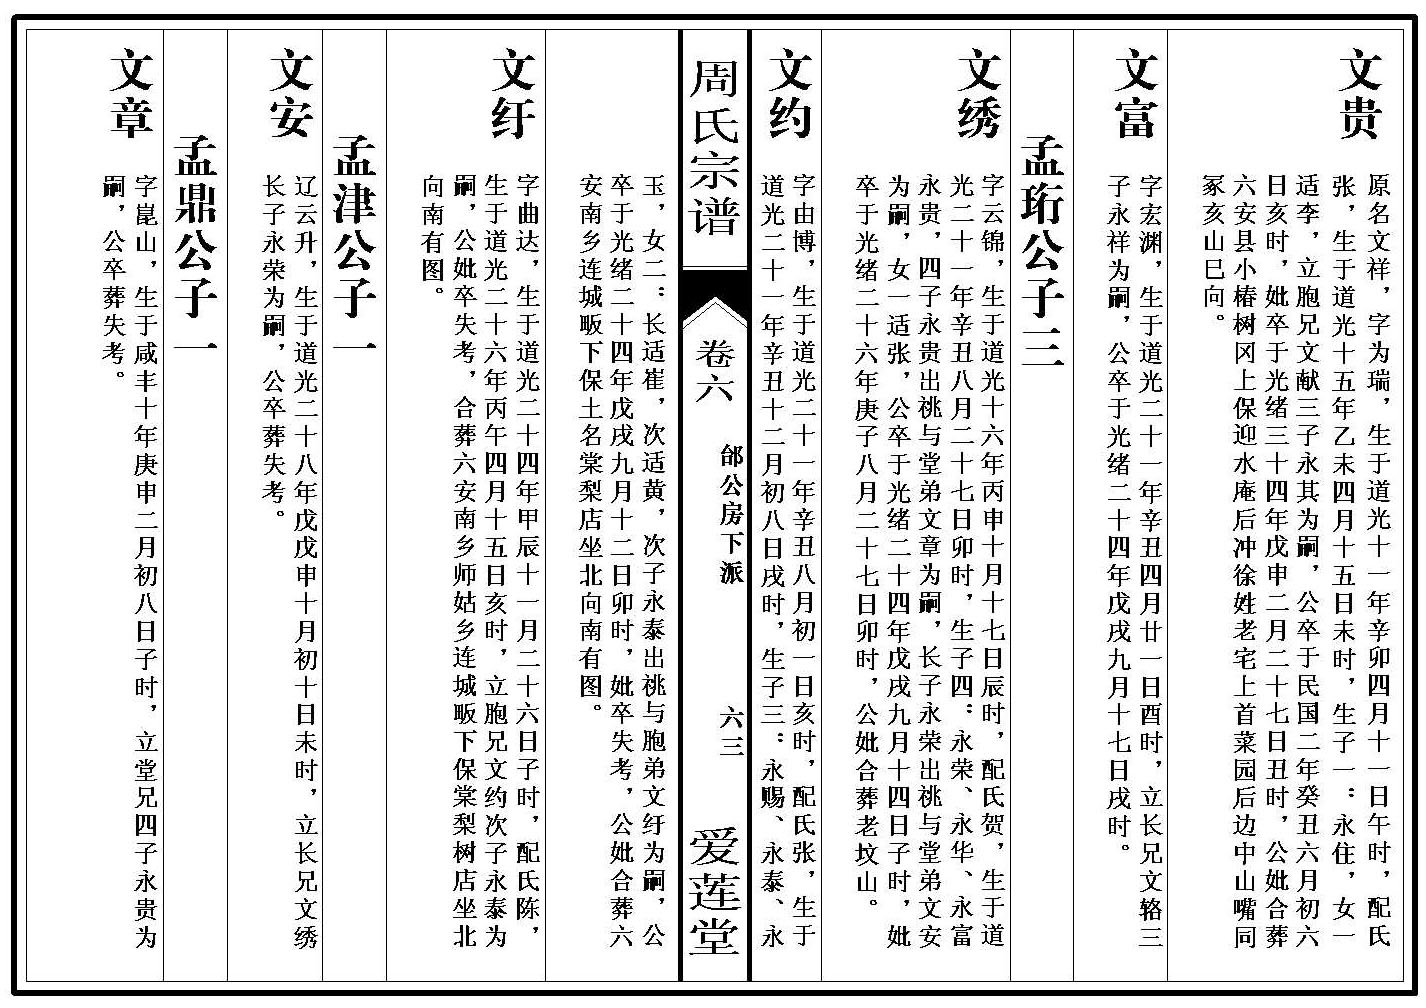 文贵
原名文祥，字为瑞，生于道光十一年辛卯四月十一日午时，配氏
张，生于道光十五年乙未四月十五日未时，生子一：永住，女一
适李，立胞兄文献三子永其为嗣，公卒于民国二年癸丑六月初六
日亥时，妣卒于光绪三十四年戊申二月二十七日丑时，公妣合葬
六安县小椿树冈上保迎水庵后冲徐姓老宅上首菜园后边中山嘴同
冢亥山巳向。
文富
字宏渊，生于道光二十一年辛丑四月廿一日酉时，立长兄文辂三
子永祥为嗣，公卒于光绪二十四年戊戌九月十七日戌时。
孟珩公子三
文绣
字云锦，生于道光十六年丙申十月十七日辰时，配氏贺，生于道
光二十一年辛丑八月二十七日卯时，生子四：永荣、永华、永富
永贵，四子永贵出祧与堂弟文章为嗣，长子永荣出祧与堂弟文安
为嗣，女一适张，公卒于光绪二十四年戊戌九月十四日子时，妣
卒于光绪二十六年庚子八月二十七日卯时，公妣合葬老坟山。
文约
字由博，生于道光二十一年辛丑八月初一日亥时，配氏张，生于
道光二十一年辛丑十二月初八日戌时，生子三：永赐、永泰、永
周氏宗谱
卷六
邰公房下派
六三
爱莲堂
玉，女二：长适崔，次适黄，次子永泰出祧与胞弟文纡为嗣，公
卒于光绪二十四年戊戌九月十二日卯时，妣卒失考，公妣合葬六
安南乡连城畈下保土名棠梨店坐北向南有图。
文纡
字曲达，生于道光二十四年甲辰十一月二十六日子时，配氏陈，
生于道光二十六年丙午四月十五日亥时，立胞兄文约次子永泰为
嗣，公妣卒失考，合葬六安南乡师姑乡连城畈下保棠梨树店坐北
向南有图。
孟津公子一
文安
辽云升，生于道光二十八年戊戊申十月初十日未时，立长兄文绣
长子永荣为嗣，公卒葬失考。
孟鼎公子一
文章
字崑山，生于咸丰十年庚申二月初八日子时，立堂兄四子永贵为
嗣，公卒葬失考。